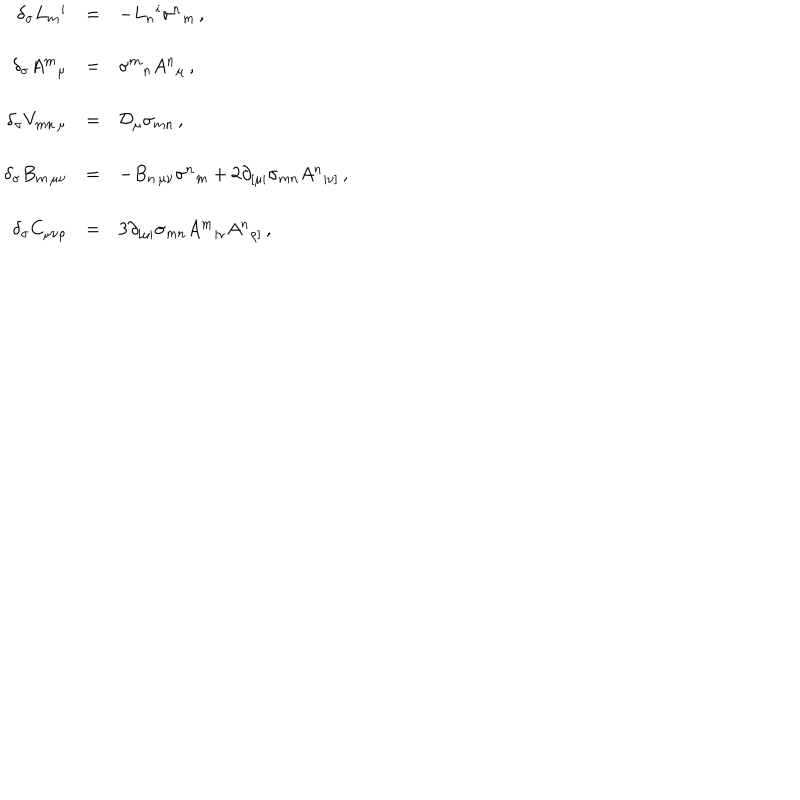 δ_σ L_m{}^i = −L_n{}^i σ^n{}_m ,
δ_σ A^m{}_μ = σ^m{}_n A^n{}_μ ,
δ_σ V_{mn μ} = 𝒟_μ σ_{mn} ,
δ_σ B_{m μν} = −B_{n μν} σ^n{}_m + 2∂_{[μ|} σ_{mn} A^n{}_{|ν]} ,
δ_σ C_{μνρ} = 3∂_{[μ|} σ_{mn} A^m{}_{|ν} A^n{}_{ρ]} ,